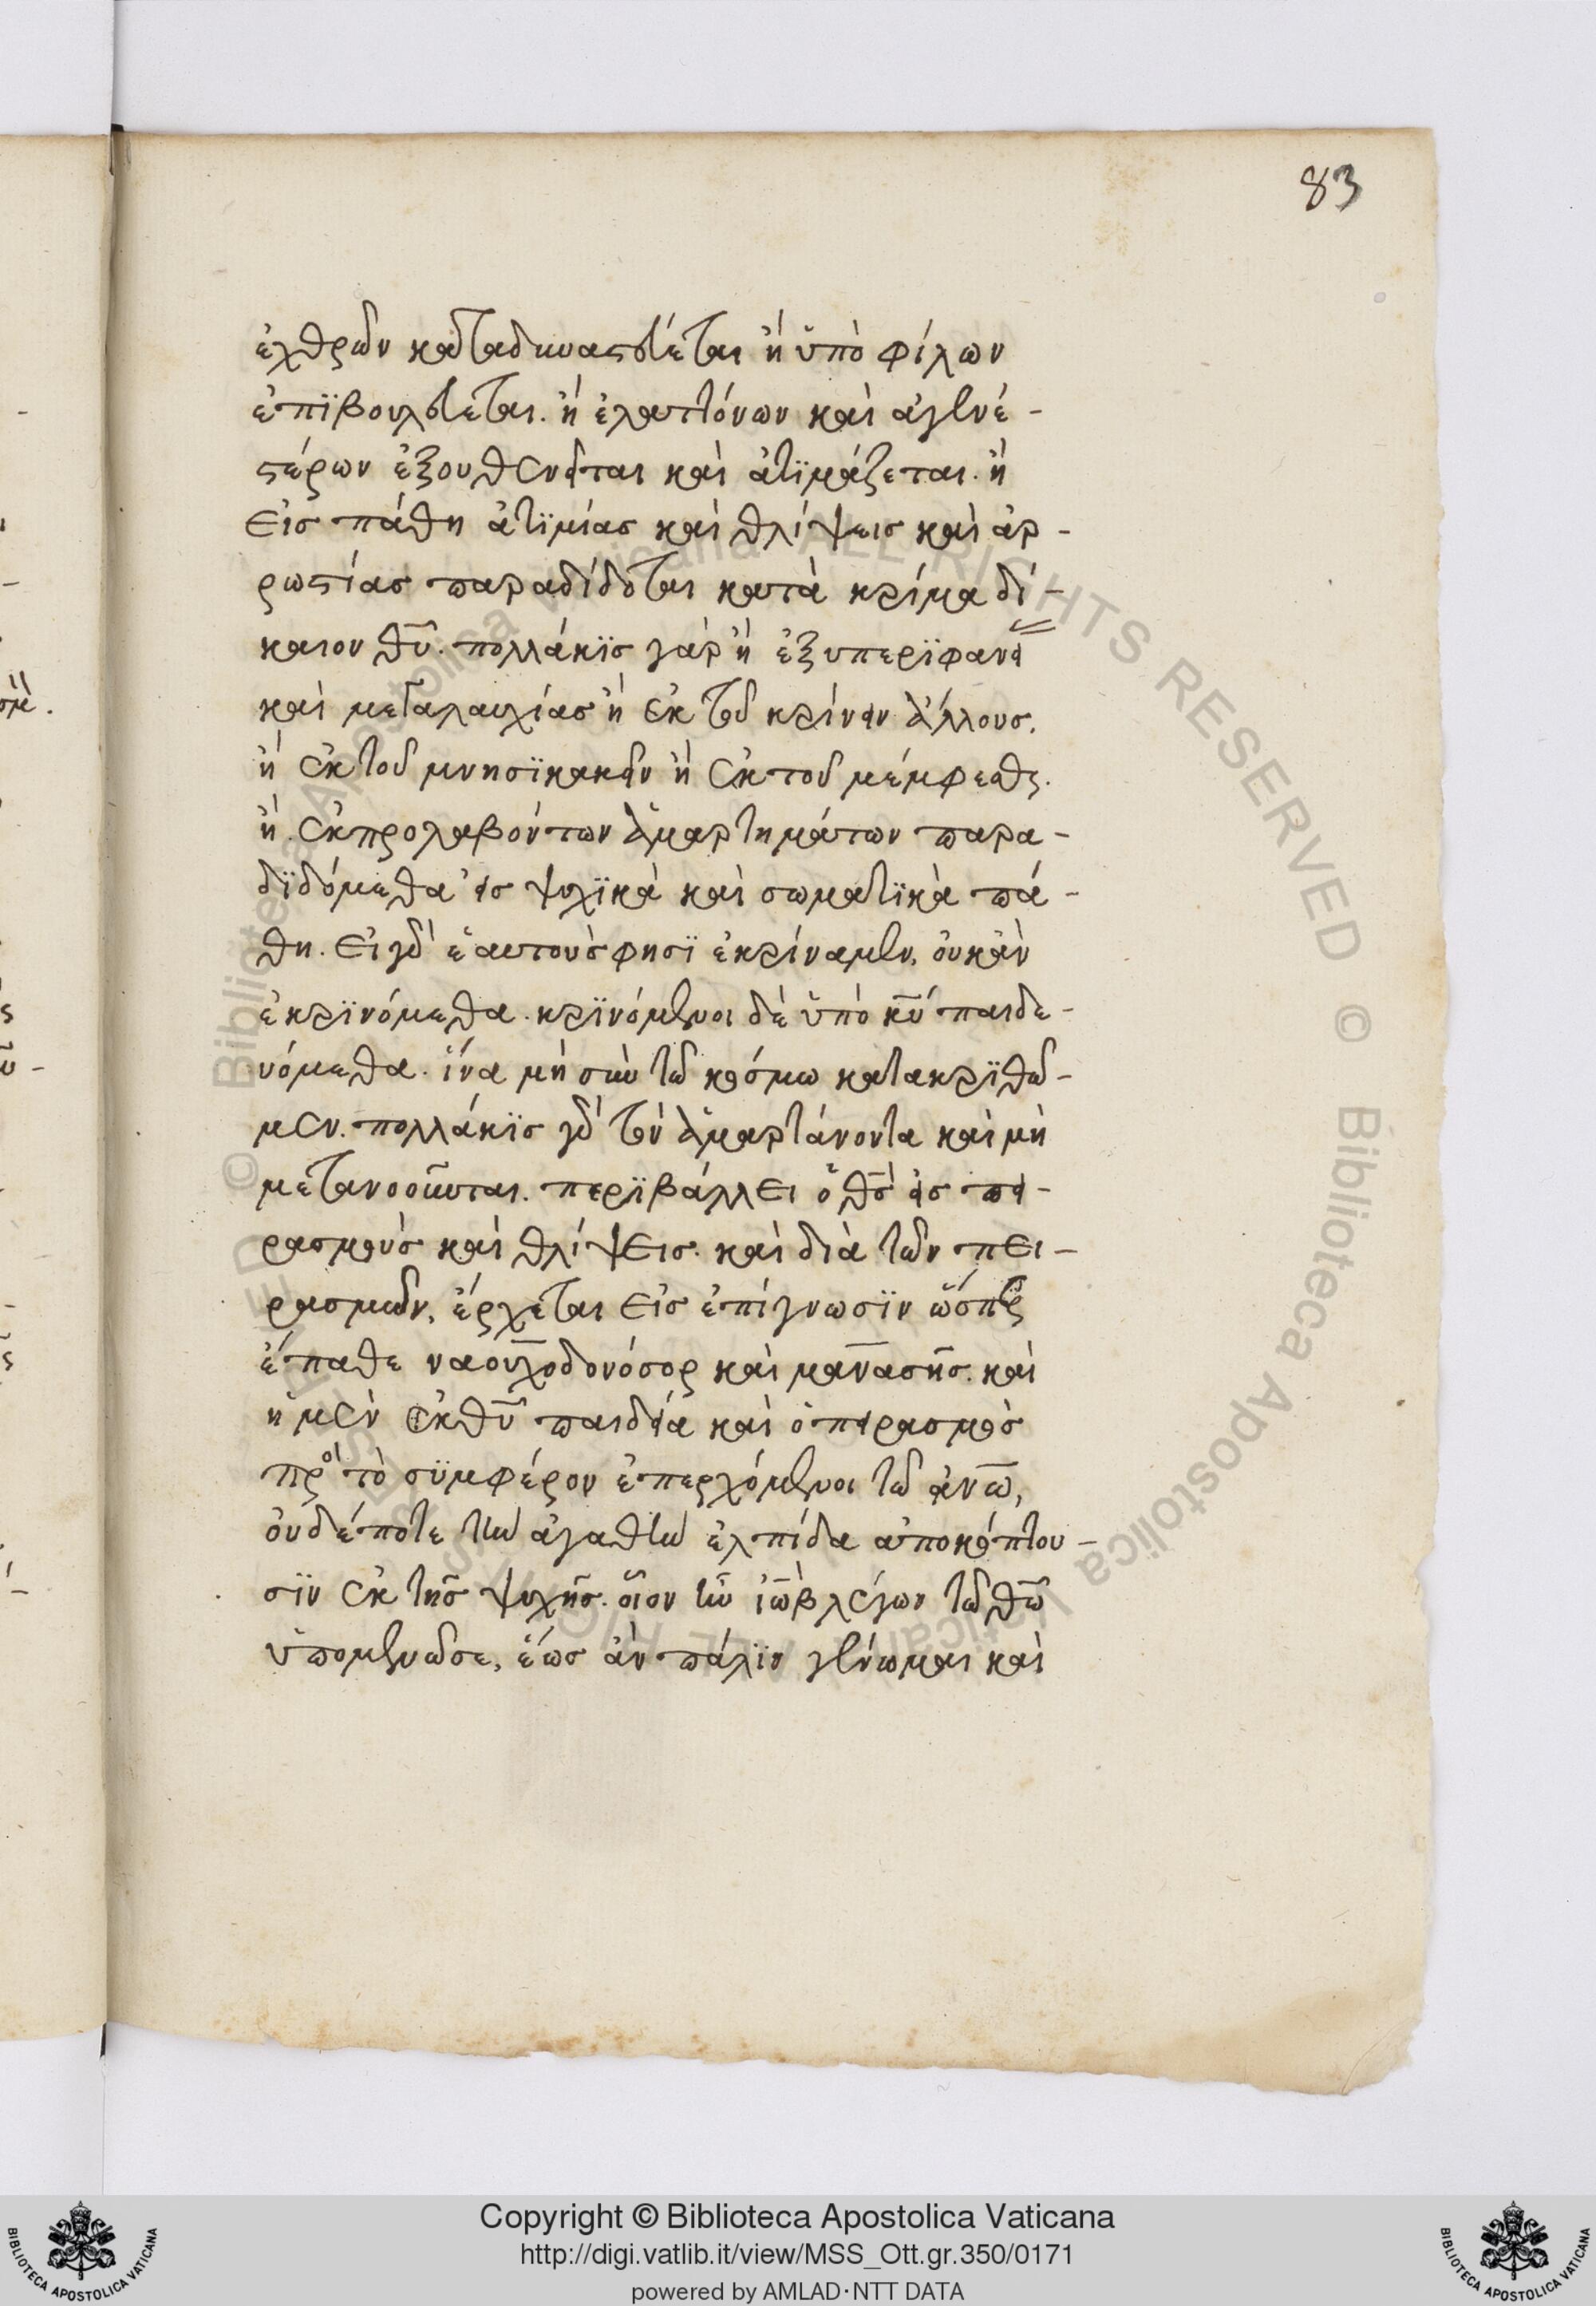 83
ἐχθρῶν καταδυναστεύεται ἢ ὑπὸ φίλων
ἐπϊβουλεύεται. ἢ ἐλαττόνων καὶ ἀγενε-
στέρων ἐξουθενεῖται καὶ ἀτϊμάζεται. ἢ
εἰς πάθη ἀτϊμίας καὶ θλίψεις καὶ ἀρ-
ρωστίας παραδίδοται κατὰ κρίμα δί-
καιον θῦ. πολλάκϊς γὰρ ἢ ἐξ υπερϊφανεί
καὶ μεγαλαυχίας ἢ ἐκ τοῦ κρίνειν ἄλλους.
ἢ ἐκ τοῦ μνησϊκακεῖν ἢ ἐκ τοῦ μέμφεσθαι.
ἢ ἐκ προλαβόντων ἁμαρτημάτων παρα-
δϊδόμεθα εἰς ψυχϊκὰ καὶ σωματϊκὰ πά-
θη. εἰ γὰρ ἑαυτοὺς φησϊ ἐκρίναμεν, οὐκ ἂν
ἐκρϊνόμεθα. κρϊνόμενοι δὲ ὑπὸ κῦ παιδε-
υόμεθα. ἵνα μὴ σὺν τῶ κόσμω κατακρϊθῶ-
μεν. πολλάκϊς γὰρ τὸν ἁμαρτάνοντα καὶ μὴ
μετανοοῦντα. περϊβάλλει ὁ θς εἰς πει-
ρασμοὺς καὶ θλίψεις. καὶ διὰ τῶν πει-
ρασμῶν, ἔρχεται εἰς ἐπίγνωσϊν ὥσπερ
ἔπαθε ναουχοδονόσορ καὶ μανασῆς. καὶ
ἡ μὲν ἐκ θῦ παιδεία καὶ ὁ πειρασμὸς
πρὸς τὸ σϋμφέρον ἐπερχόμενοι τῶ ἀνω,
οὐδέποτε τὴν ἀγαθὴν ἐλπίδα ἀποκόπτου-
σϊν ἐκ τῆς ψυχῆς. οἷον ἦν ἰὼβ λέγων τῶ θω
ὑπομενῶ σε, ἕως ἂν πάλϊν γένωμαι καὶ
Copyright © Biblioteca Apostolica Vaticana
http://digi.vatlib.it/view/MSS_Ott.gr.350/0171
powered by AMLAD·NTT DATA